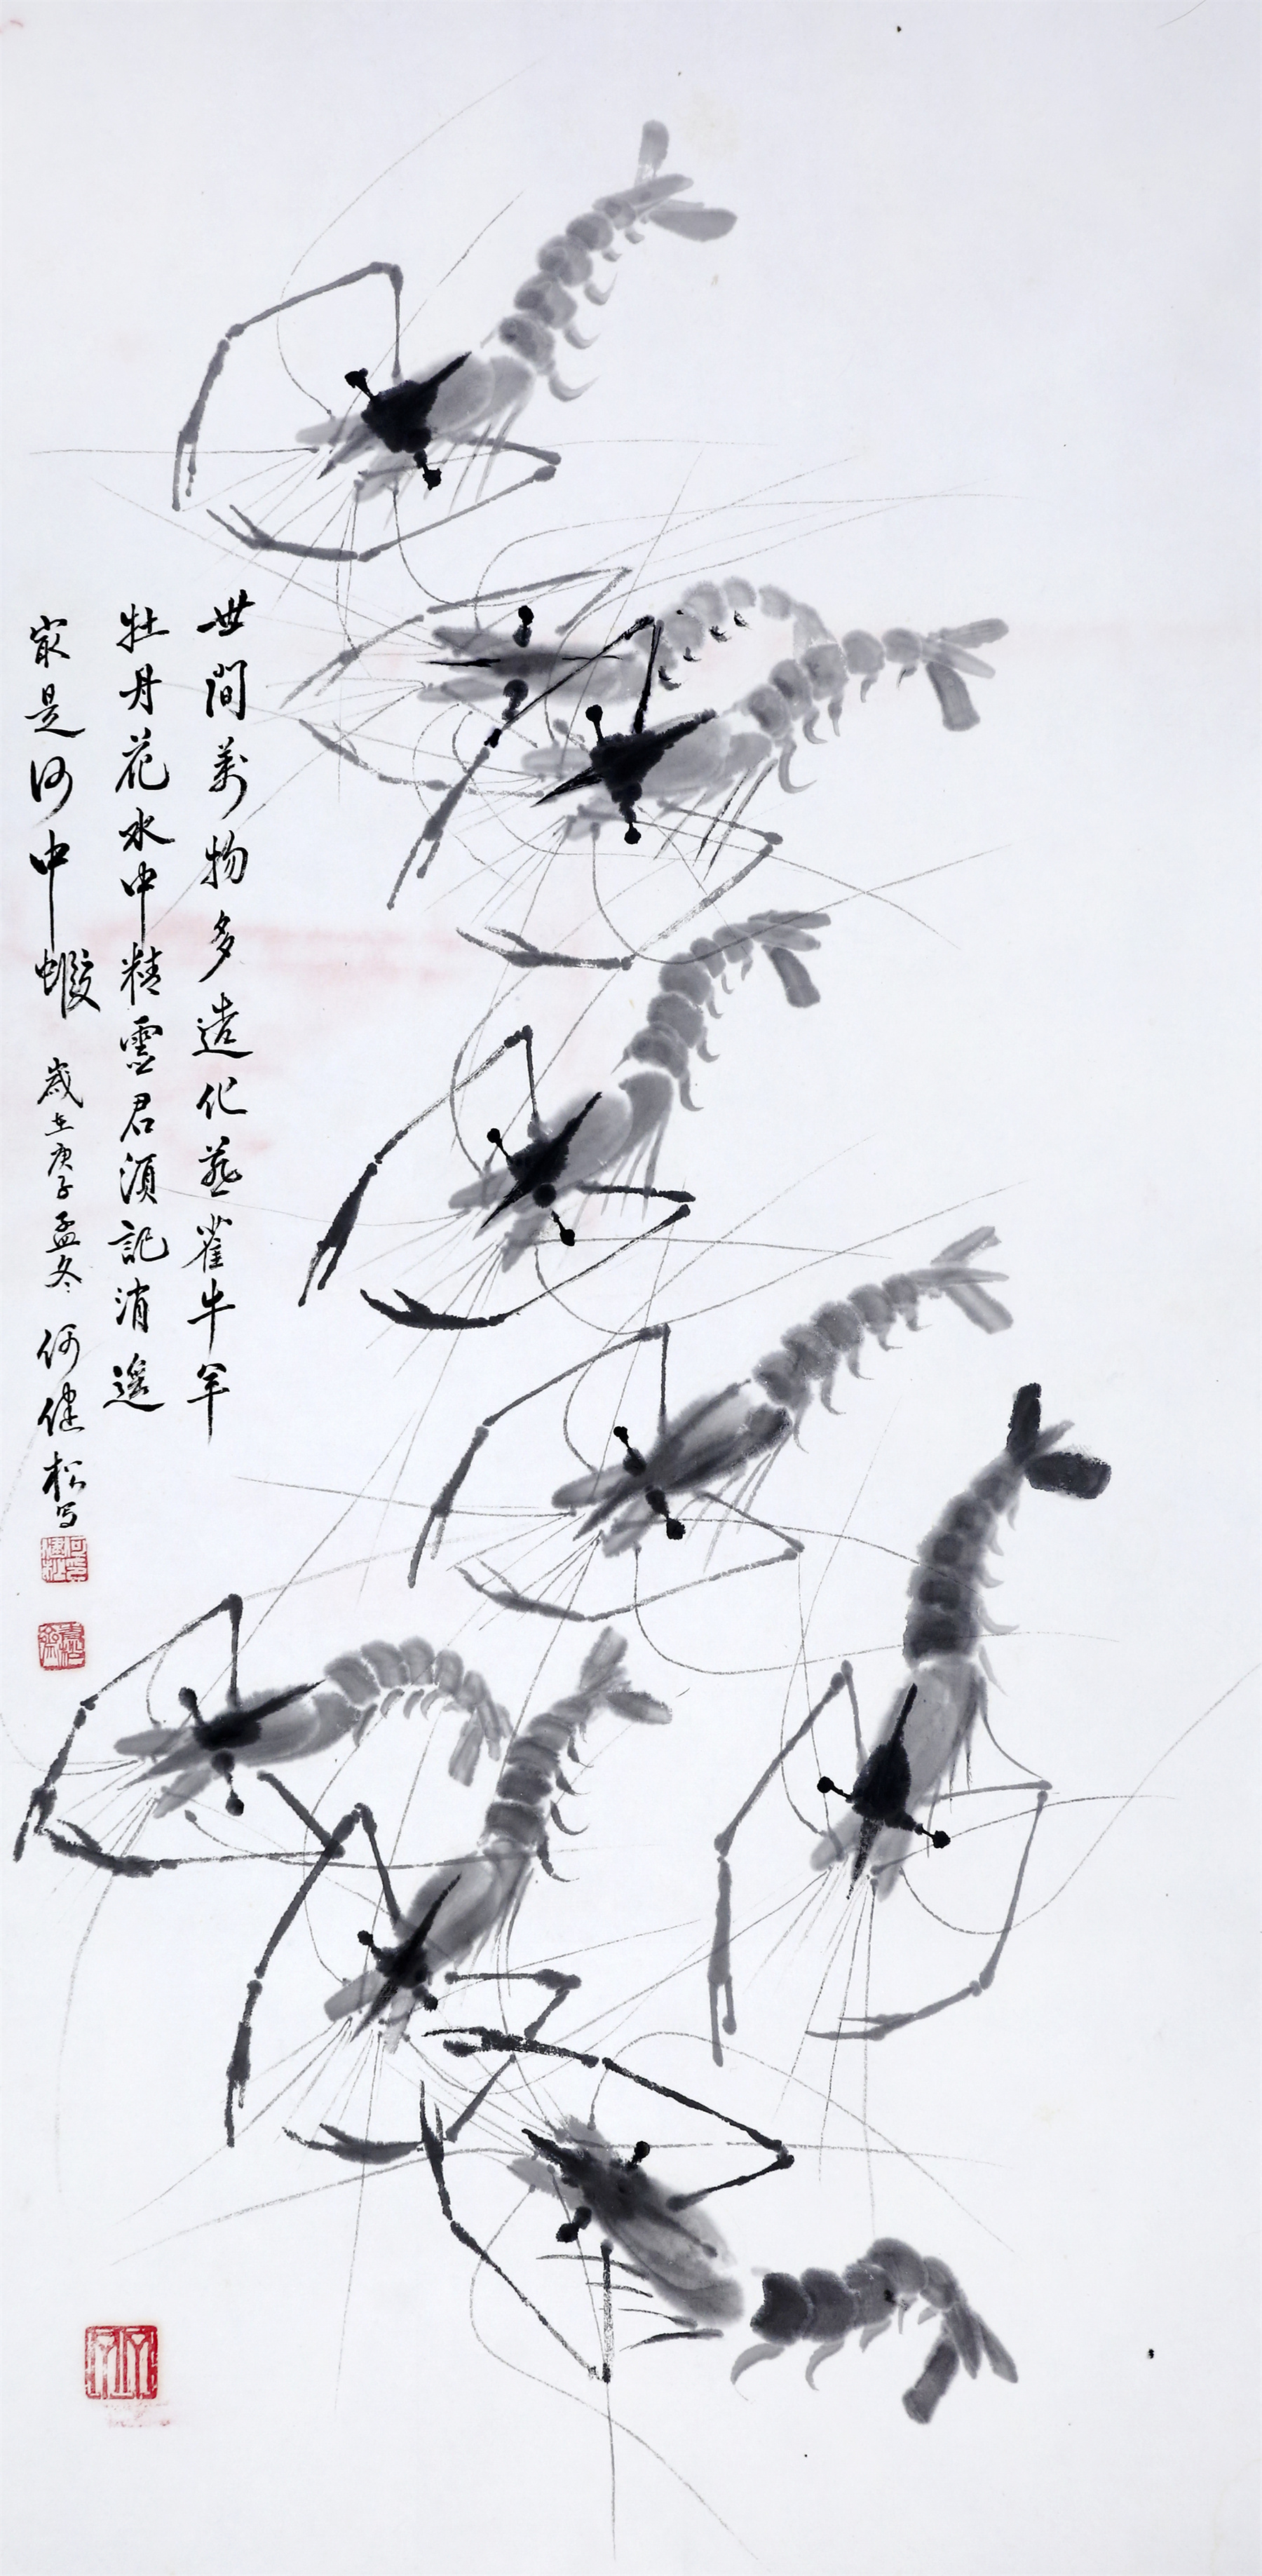 世间萬物多造化燕雀牛羊
牡丹花水中精靈君須記消遥
最是河中蝦 歲在庚子孟冬 何健松写